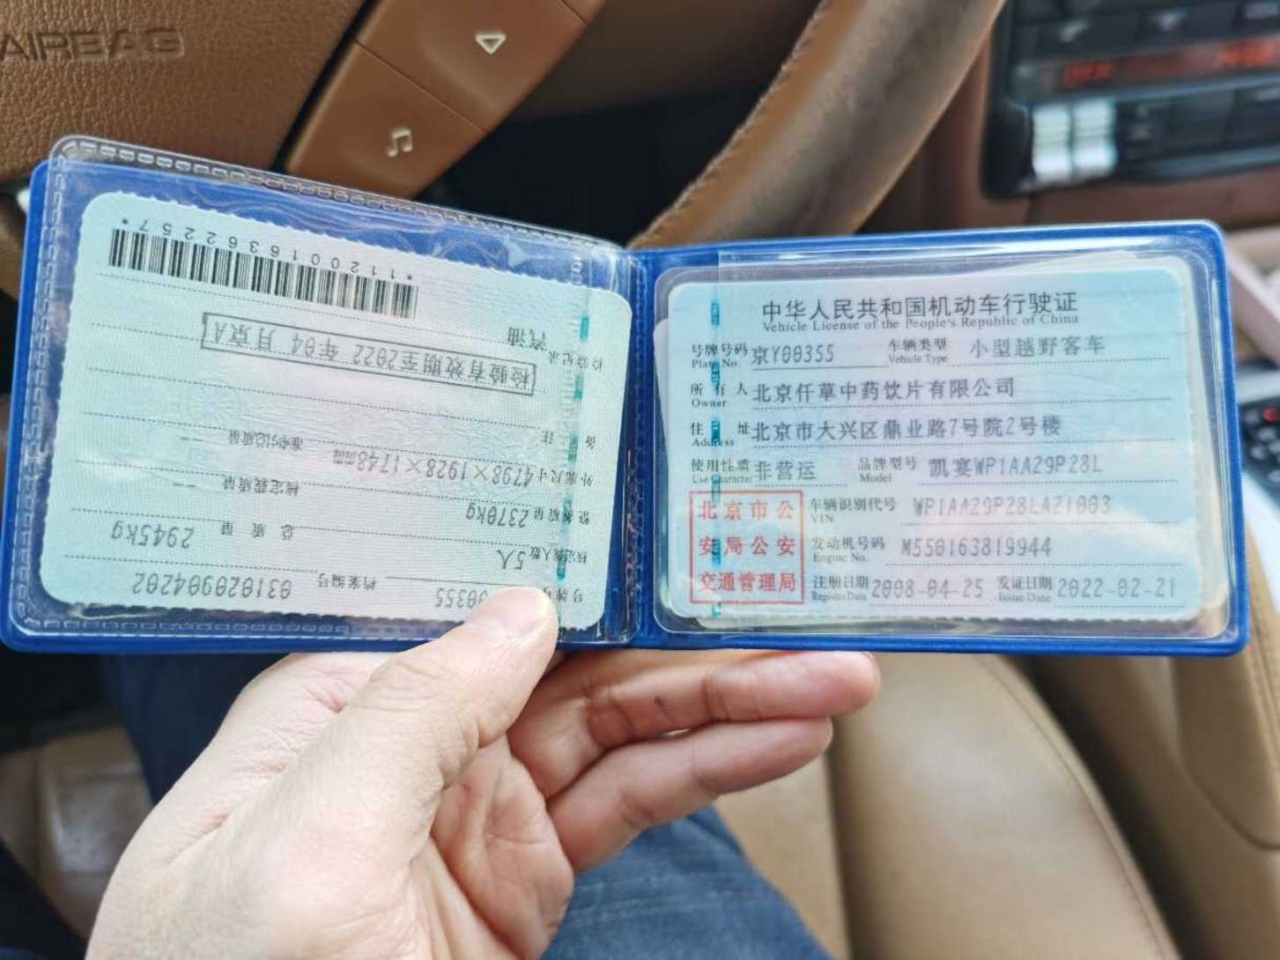 AIRBAG
中华人民共和国机动车行驶证
Vehicle License of the People's Republic of China
号牌号码 京Y00355 车辆类型 小型越野客车
Plate No. Vehicle Type
所有人 北京仟草中药饮片有限公司
Owner
住址 北京市大兴区鼎业路7号院2号楼
Address
使用性质 非营运 品牌型号 凯宴WP1AA29P28L
Use Character Model
北京市公
安局公安
交通管理局
车辆识别代号 WP1AA29P28LA21003
VIN
发动机号码 M550163819944
Engine No.
注册日期 2008-04-25 发证日期 2022-02-21
Register Date Issue Date
号牌号码 00355 档案编号 031020904202
核定载人数 5人 总质量 2945kg
整备质量 2370kg 核定载质量 --
外廓尺寸 4798×1928×1748mm 准牵引总质量 --
备注
检验有效期至2022年04月京A
检验记录 汽油
*1120016362257*